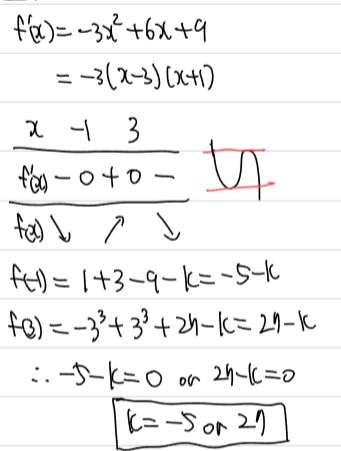 f'(x)=-3x²+6x+9
=-3(x-3)(x+1)
x -1 3
f'(x) - 0 + 0 -
f(x) ↘ ↗ ↘
f(-1)=1+3-9-k=-5-k
f(3)=-3³+3³+27-k=27-k
∴ -5-k=0 or 27-k=0
k=-5 or 27